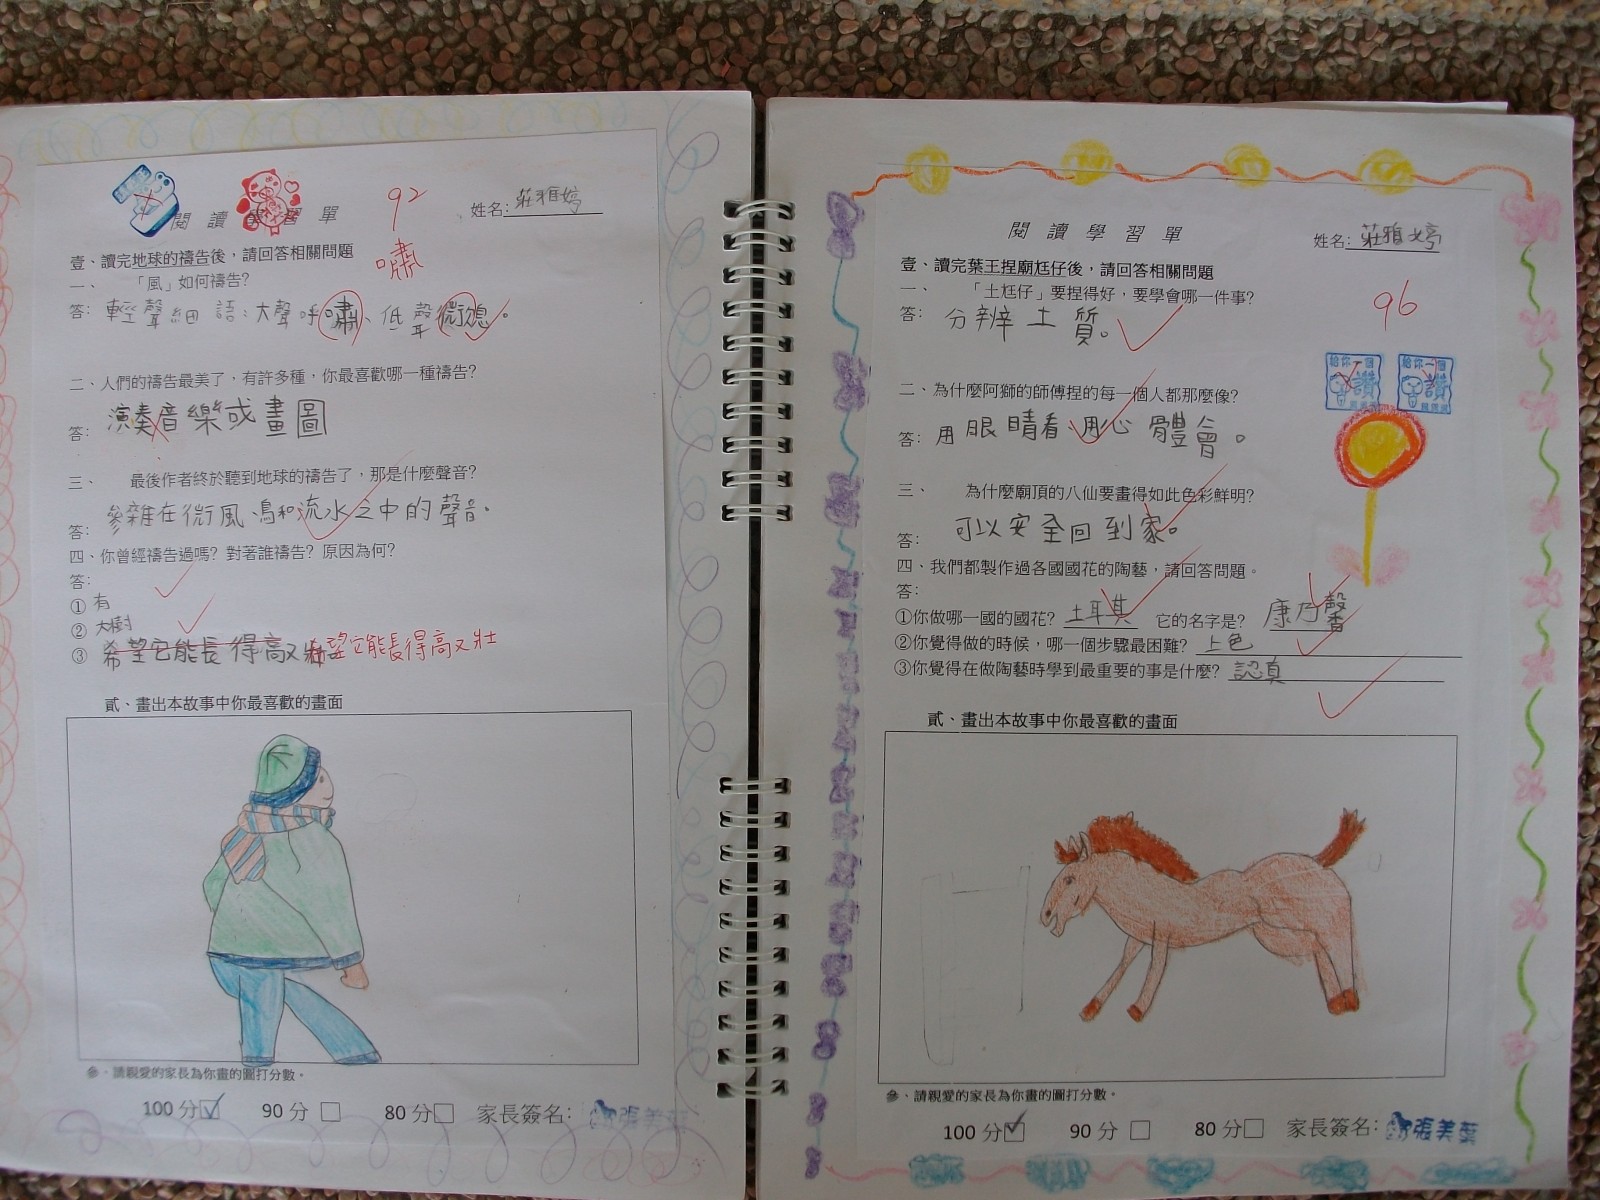 閱讀學習單
92
姓名：莊雅婷
嘯
壹、讀完地球的禱告後，請回答相關問題
一、「風」如何禱告？
答：輕聲細語；大聲呼嘯、低聲微息。
二、人們的禱告最美了，有許多種，你最喜歡哪一種禱告？
答：演奏音樂或畫圖
三、最後作者終於聽到地球的禱告了，那是什麼聲音？
答：參雜在微風、鳥和流水之中的聲音。
四、你曾經禱告過嗎？對著誰禱告？原因為何？
答：
①有
②大樹
③希望它能長得高又壯 希望它能長得高又壯
貳、畫出本故事中你最喜歡的畫面
參、請親愛的家長為你畫的圖打分數。
100 分☑ 90 分□ 80 分□ 家長簽名：張美葉
閱讀學習單
姓名：莊雅婷
壹、讀完葉王捏廟尪仔後，請回答相關問題
96
一、「土尪仔」要捏得好，要學會哪一件事？
答：分辨土質。
給你一個讚
給你一個讚
二、為什麼阿獅的師傅捏的每一個人都那麼像？
答：用眼睛看、用心體會。
三、為什麼廟頂的八仙要畫得如此色彩鮮明？
答：可以安全回到家。
四、我們都製作過各國國花的陶藝，請回答問題。
答：
①你做哪一國的國花？土耳其 它的名字是？康乃馨
②你覺得做的時候，哪一個步驟最困難？上色
③你覺得在做陶藝時學到最重要的事是什麼？認真
貳、畫出本故事中你最喜歡的畫面
參、請親愛的家長為你畫的圖打分數。
100 分☑ 90 分□ 80 分□ 家長簽名：張美葉